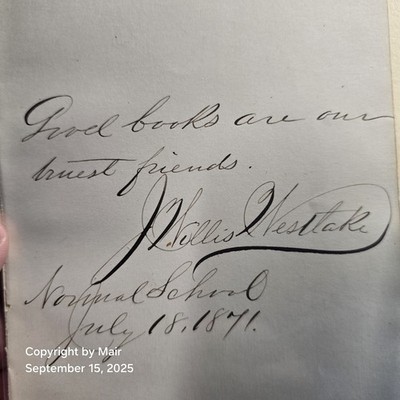 Good books are our
truest friends.
J Willis Westlake
Normal School
July 18, 1871.
Copyright by Mair
September 15, 2025